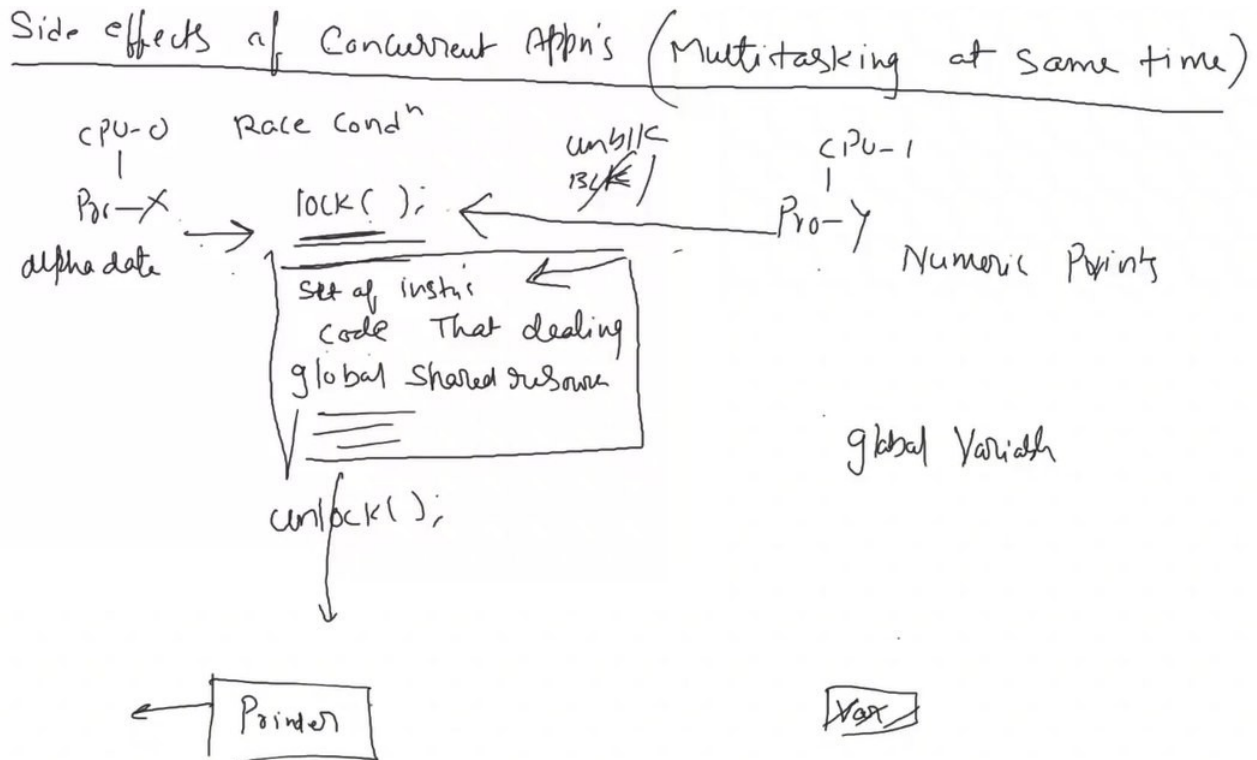 Side effects of Concurrent Appn's (Multitasking at same time)
CPU-0 Race Condⁿ
unblk
Blk
CPU-1
Pro-X
lock( );
Pro-Y
alpha date
Numeric Points
set of instr's
code That dealing
global shared resoure
global Variable
unlock( );
Printer
Var